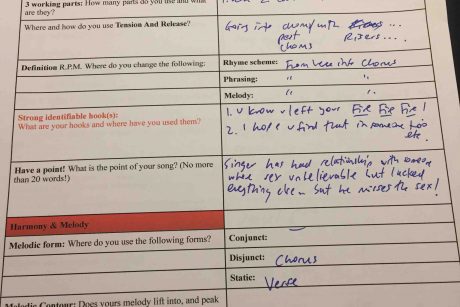 3 working parts: How many parts do you use and what
are they?
Where and how do you use Tension And Release?
Going into chorus with ...
post Risers...
Chorus
Definition R.P.M. Where do you change the following:
Rhyme scheme: From Verse into Chorus
Phrasing: " "
Melody: " "
Strong identifiable hook(s):
What are your hooks and where have you used them?
1. U know u left your Fire Fire Fire!
2. I hope u find that in someone
etc.
Have a point! What is the point of your song? (No more
than 20 words!)
Singer has had relationship with someone
where sex unbelievable but lacked
everything else. But he misses the sex!
Harmony & Melody
Melodic form: Where do you use the following forms?
Conjunct:
Disjunct: Chorus
Static: Verse
Melodic Contour: Does yours melody lift into, and peak